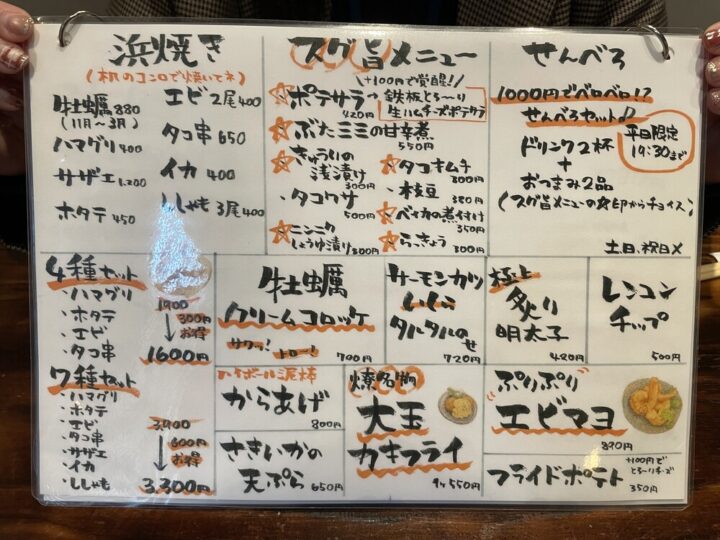 浜焼き
(机のコンロで焼いてネ)
牡蠣 880
(11月〜3月)
ハマグリ 400
サザエ 1,200
ホタテ 450
エビ 2尾 400
タコ串 650
イカ 400
ししゃも 3尾 400
スグ旨メニュー
\+100円で覚醒!/
☆ポテサラ → 鉄板とろ〜り
420円 生ハムチーズポテサラ
☆ぶたミミの甘辛煮
550円
☆きゅうりの
浅漬け
300円
・タコワサ
500円
☆ニンニク
しょうゆ漬け 300円
☆タコキムチ
300円
・枝豆
380円
☆ベイカの煮付け
350円
☆らっきょう
300円
せんべろ
1000円でベロベロ!?
せんべろセット♪
平日限定
19:30まで
ドリンク2杯
+
おつまみ2品
(スグ旨メニューの☆印からチョイス)
土日、祝日×
4種セット
・ハマグリ
・ホタテ
・エビ
・タコ串
1900
↓ 300円
お得
1600円
7種セット
・ハマグリ
・ホタテ
・エビ
・タコ串
・サザエ
・イカ
・ししゃも
3,900
↓ 600円
お得
3,300円
牡蠣
クリームコロッケ
サクッ! トロ〜!
700円
サーモンカツ
タルタルのせ
720円
極上
炙り
明太子
480円
レンコン
チップ
500円
ハイボール泥棒
からあげ
800円
さきいかの
天ぷら 650円
燎名物
大玉
カキフライ
1ケ 550円
ぷりぷり
エビマヨ
890円
フライドポテト
+100円で
とろ〜りチーズ
350円